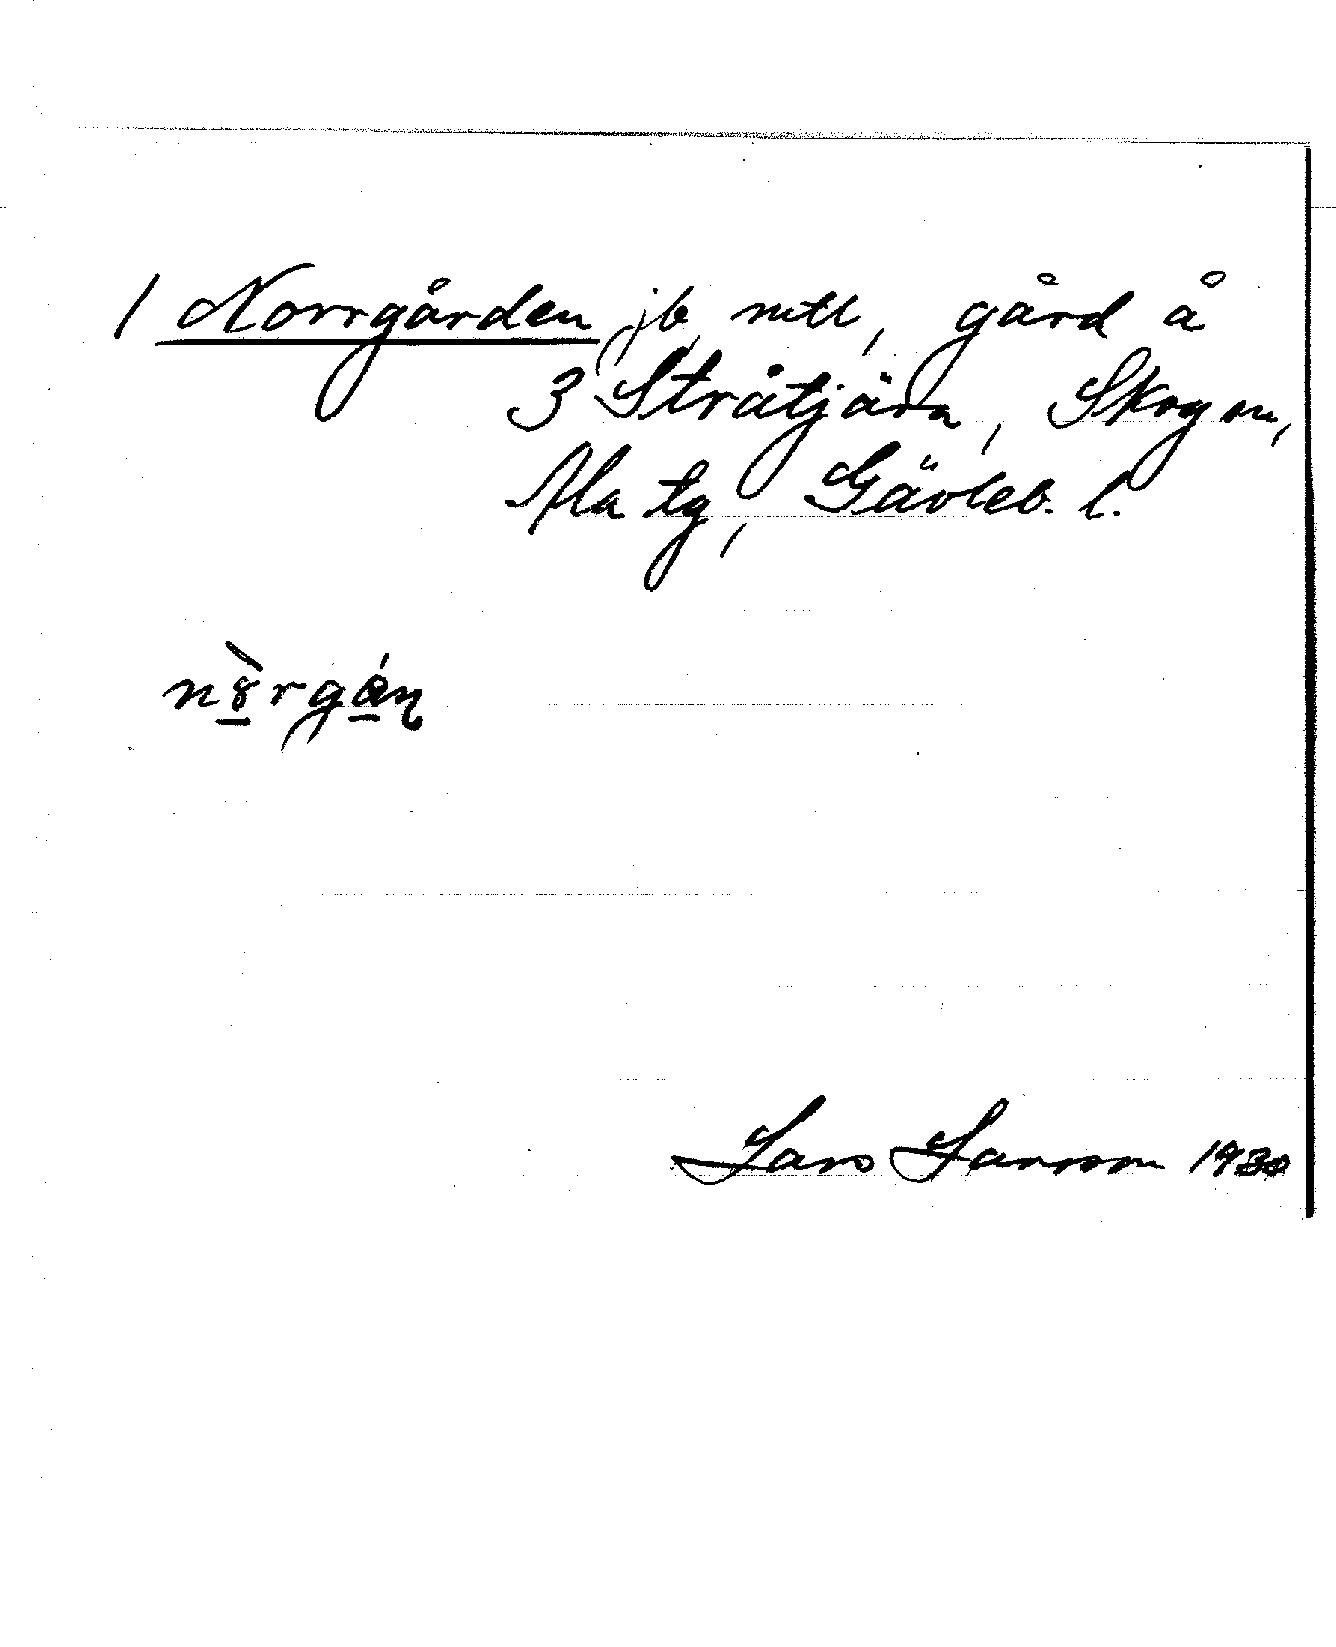 1 Norrgården jb, mtl, gård å
3 Stråtjära, Skog sn,
Ala tg, Gävleb. l.
Lars Larsson 1930